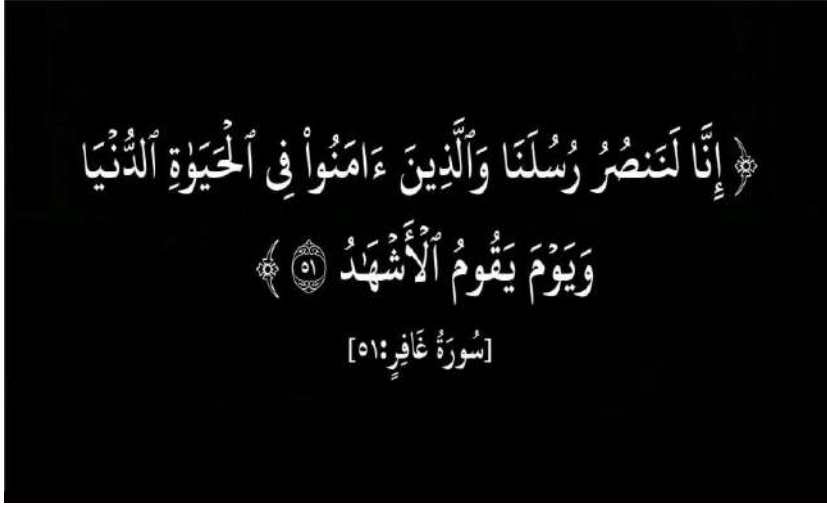 ﴿ إِنَّا لَنَنصُرُ رُسُلَنَا وَٱلَّذِينَ ءَامَنُوا۟ فِى ٱلْحَيَوٰةِ ٱلدُّنْيَا
وَيَوْمَ يَقُومُ ٱلْأَشْهَـٰدُ ٥١ ﴾
[سُورَةُ غَافِرٍ:٥١]